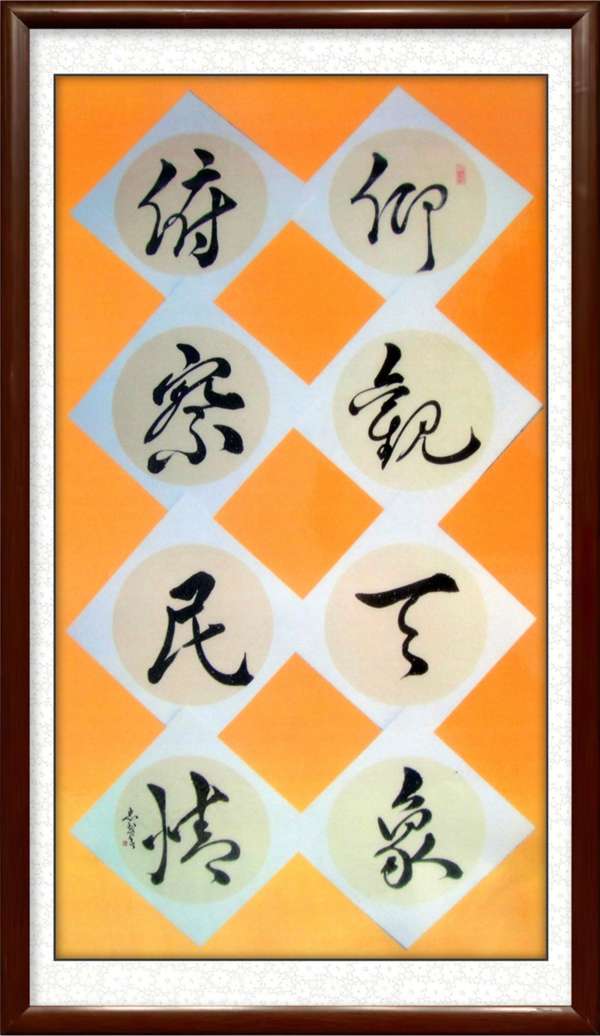 仰觀天象
俯察民情